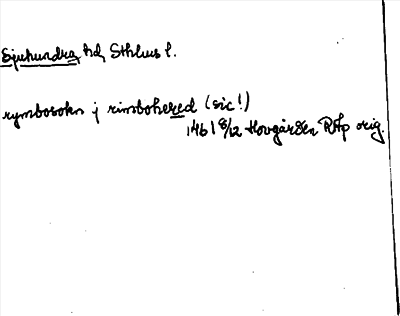 Sjuhundra hd, Sthlms l.
rymbosokn j rimbohered (sic!)
1461 8/12 Hovgården RAp orig.